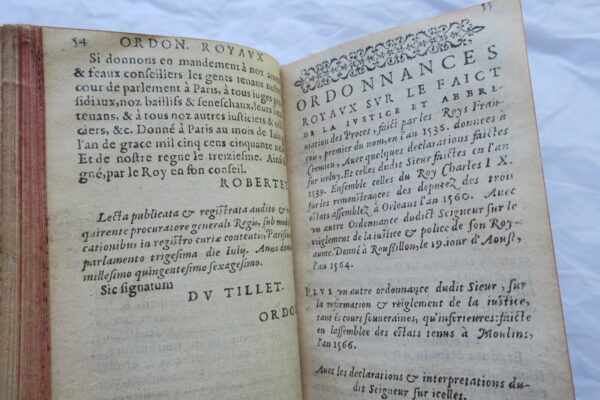 54 ORDON. ROYAUX
Si donnons en mandement à noz amez
& feaux conseillers les gents tenans nostre
cour de parlement à Paris, à tous iuges presi-
sidiaux, noz baillifs & seneschaux, leurs lieu-
tenans, & à tous noz autres iusticiers & offi-
ciers, &c. Donné à Paris au mois de
l'an de grace mil cinq cens cinquante
Et de nostre regne le treziesme. Ainsi
gné, par le Roy en son conseil.
ROBERTET
Lecta publicata & registrata audito &
quirente procuratore generali Regis, sub modi-
cationibus in registro curiæ contentis, Parisiis
parlamento trigesima die Iuly. Anno domi
millesimo quingentesimo sexagesimo.
Sic signatum
DV TILLET.
ORDO
55
ORDONNANCES
ROYAUX SUR LE FAICT
DE LA IVSTICE ET ABBRE-
uiation des Proces, faict par les Roys Fran-
çou, premier du nom, en l'an 1535. données à
Cremieu, Auec quelques declarations faictes
sur iceluy. Et celles dudict Sieur faictes en l'an
1539. Ensemble celles du Roy Charles IX.
sur les remonstrances des deputez des trois
estats assemblez à Orleans l'an 1560. Auec
un autre Ordonnance dudict Seigneur sur le
reiglement de la iustice & police de son Roy-
aume. Donné à Roußillon, le 19. iour d'Aoust,
l'an 1564.
PLVS un autre ordonnance dudit Sieur, sur
la reformation & reiglement de la iustice,
tant és cours souueraines, qu'inferieures: faicte
en l'assemblee des estats tenus à Moulins,
l'an 1566.
Auec les declarations & interpretations du-
dit Seigneur sur icelles.